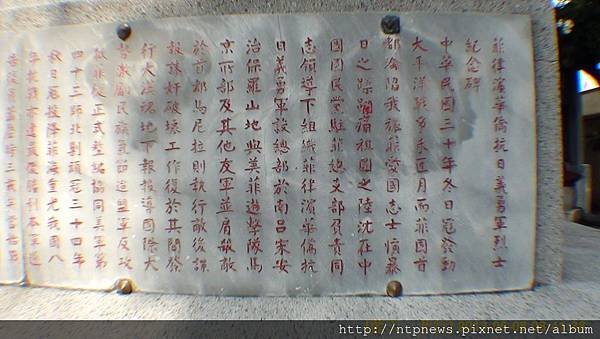 菲律濱華僑抗日義勇軍烈士
紀念碑
中華民國三十年冬日寇發動
太平洋戰爭未匝月而菲國首
都淪陷我旅菲愛國志士憤暴
日之蹂躪痛祖國之陸沈在中
國國民黨駐菲總支部負責同
志領導下組織菲律濱華僑抗
日義勇軍設總部於南呂宋安
治保羅山地與美菲游擊隊馬
京所部及其他友軍並肩殺敵
於首都馬尼拉則執行敵後諜
報誅奸破壞工作復於其間發
行大漢魂地下報揚導國際大
勢激勵民族氣節迨盟軍反攻
敵菲復正式整編協同美軍第
四十三師北剿頑寇三十四年
秋日寇投降菲海重光我國八
年抗戰亦達最後勝利本軍
http://ntpnews.pixnet.net/album